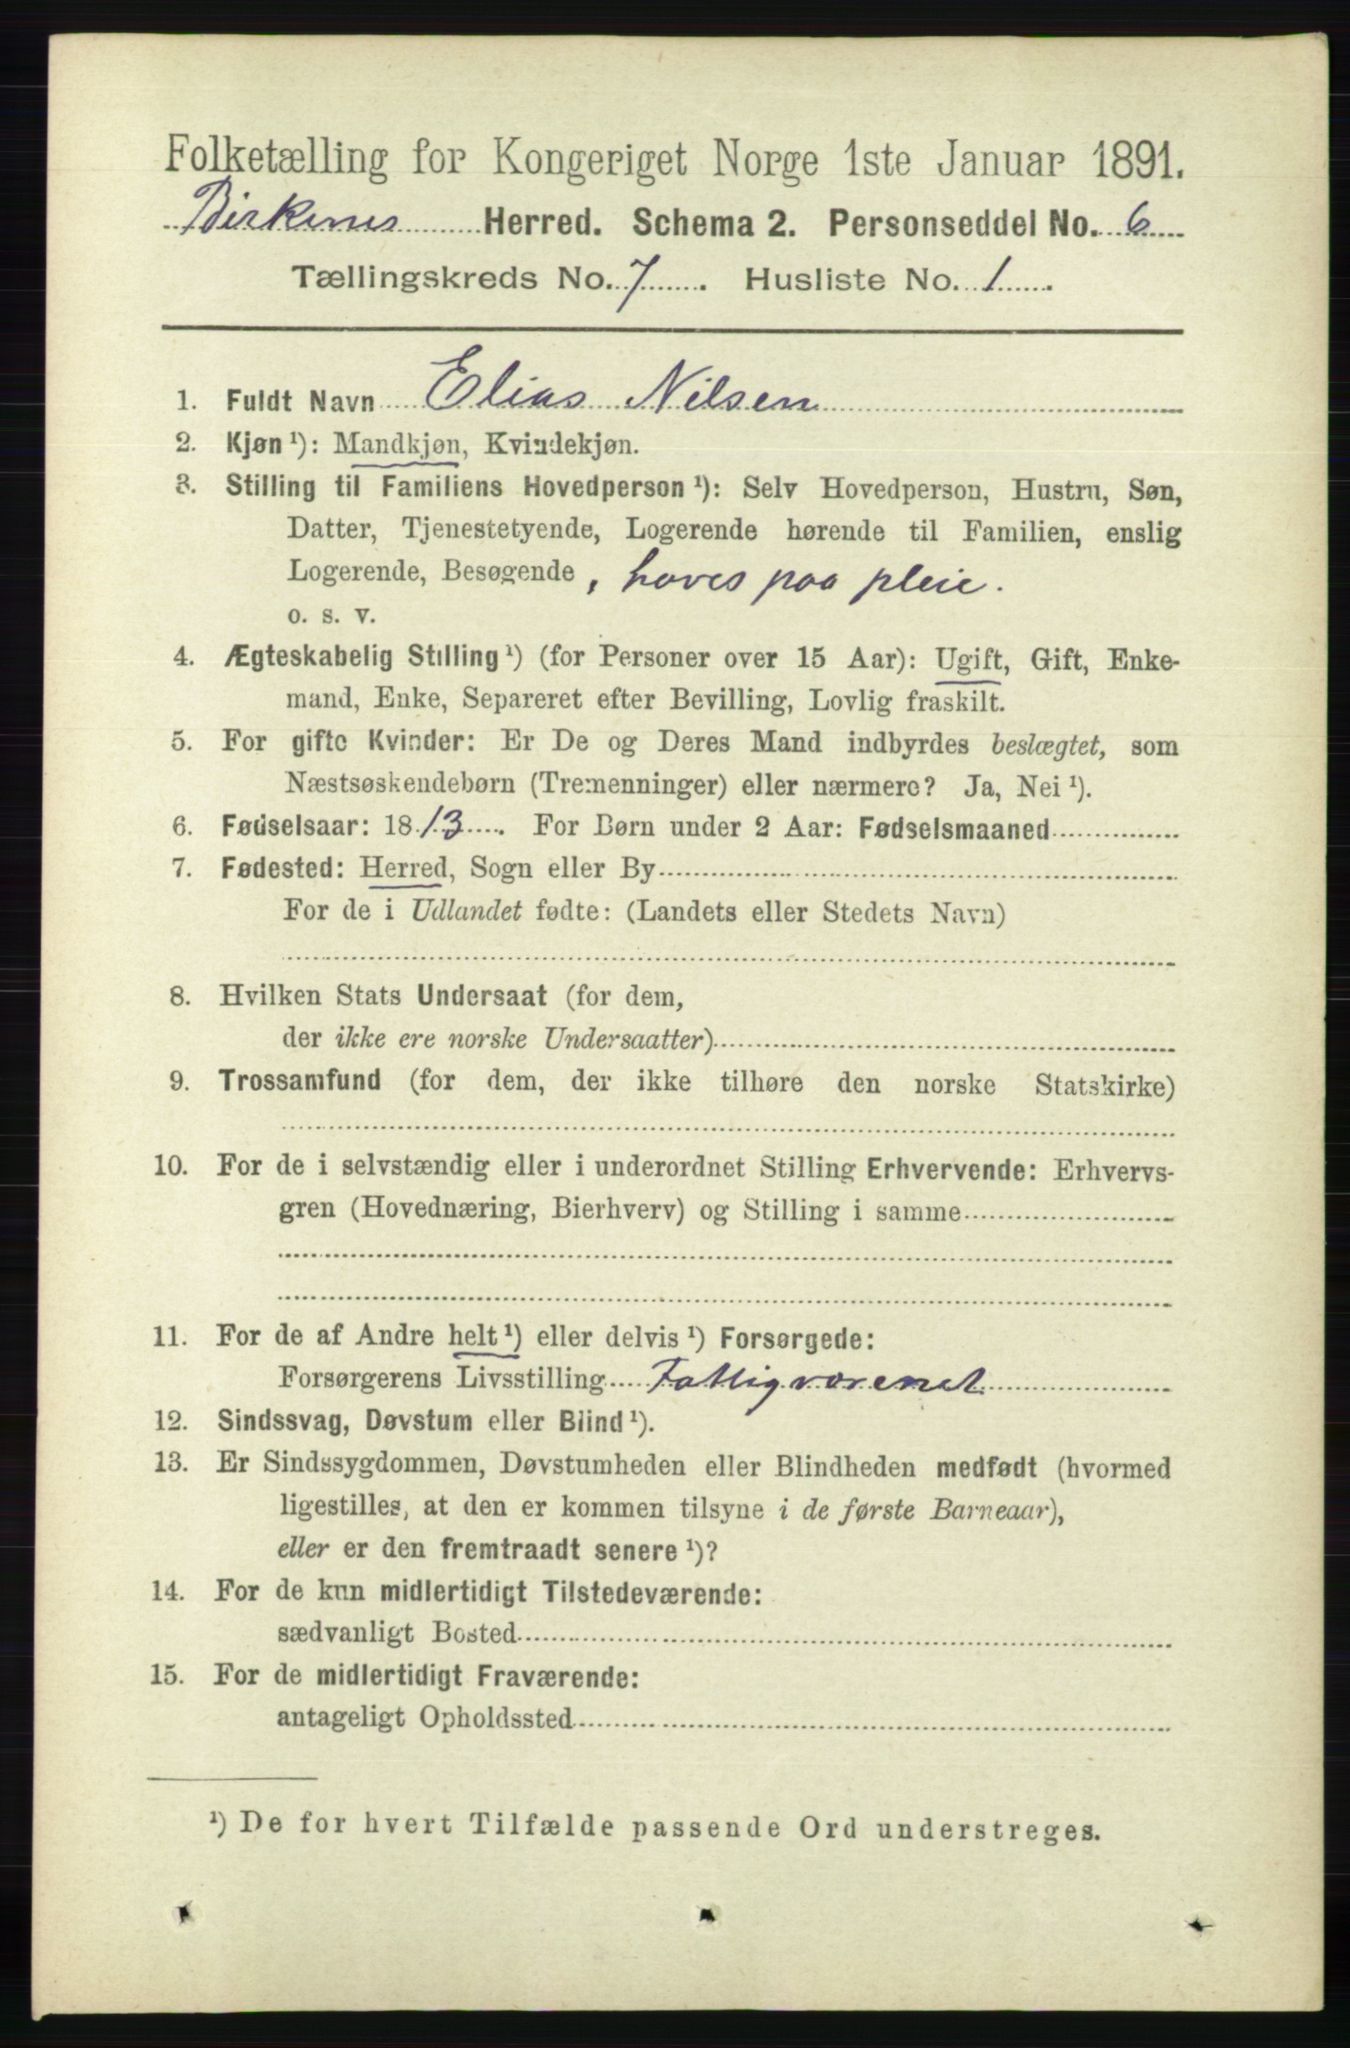 Folketælling for Kongeriget Norge 1ste Januar 1891.
Birkenes Herred. Schema 2. Personseddel No. 6
Tællingskreds No. 7. Husliste No. 1.
1. Fuldt Navn Elias Nilsen
2. Kjøn ¹): Mandkjøn, Kvindekjøn.
3. Stilling til Familiens Hovedperson ¹): Selv Hovedperson, Hustru, Søn,
Datter, Tjenestetyende, Logerende hørende til Familien, enslig
Logerende, Besøgende, haves paa pleie.
o. s. v.
4. Ægteskabelig Stilling ¹) (for Personer over 15 Aar): Ugift, Gift, Enke-
mand, Enke, Separeret efter Bevilling, Lovlig fraskilt.
5. For gifte Kvinder: Er De og Deres Mand indbyrdes beslægtet, som
Næstsøskendebørn (Tremenninger) eller nærmere? Ja, Nei ¹).
6. Fødselsaar: 1813. For Børn under 2 Aar: Fødselsmaaned
7. Fødested: Herred, Sogn eller By
For de i Udlandet fødte: (Landets eller Stedets Navn)
8. Hvilken Stats Undersaat (for dem,
der ikke ere norske Undersaatter)
9. Trossamfund (for dem, der ikke tilhøre den norske Statskirke)
10. For de i selvstændig eller i underordnet Stilling Erhvervende: Erhvervs-
gren (Hovednæring, Bierhverv) og Stilling i samme
11. For de af Andre helt ¹) eller delvis ¹) Forsørgede:
Forsørgerens Livsstilling Fattigvæsenet
12. Sindssvag, Døvstum eller Blind ¹).
13. Er Sindssygdommen, Døvstumheden eller Blindheden medfødt (hvormed
ligestilles, at den er kommen tilsyne i de første Barneaar),
eller er den fremtraadt senere ¹)?
14. For de kun midlertidigt Tilstedeværende:
sædvanligt Bosted
15. For de midlertidigt Fraværende:
antageligt Opholdssted
¹) De for hvert Tilfælde passende Ord understreges.